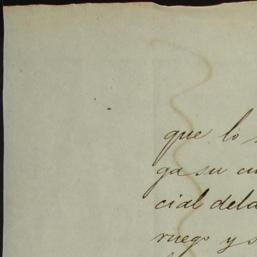 que lo
ga su
cial dela
ruego y